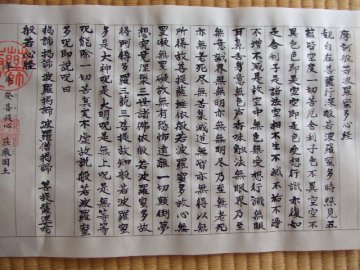 摩訶般若波羅蜜多心經
觀自在菩薩行深般若波羅蜜多時照見五
蘊皆空度一切苦厄舍利子色不異空空不
異色色即是空空即是色受想行識亦復如
是舍利子是諸法空相不生不滅不垢不淨
不增不減是故空中無色無受想行識無眼
耳鼻舌身意無色聲香味觸法無眼界乃至
無意識界無無明亦無無明盡乃至無老死
亦無老死盡無苦集滅道無智亦無得以無
所得故菩提薩埵依般若波羅蜜多故心無
罣礙無罣礙故無有恐怖遠離一切顛倒夢
想究竟涅槃三世諸佛依般若波羅蜜多故
得阿耨多羅三藐三菩提故知般若波羅蜜
多是大神呪是大明呪是無上呪是無等等
呪能除一切苦真実不虚故説般若波羅蜜
多呪即説呪曰
揭諦揭諦 波羅揭諦 波羅僧揭諦 菩提薩婆訶
般若心経
発菩提心 莊厳国土